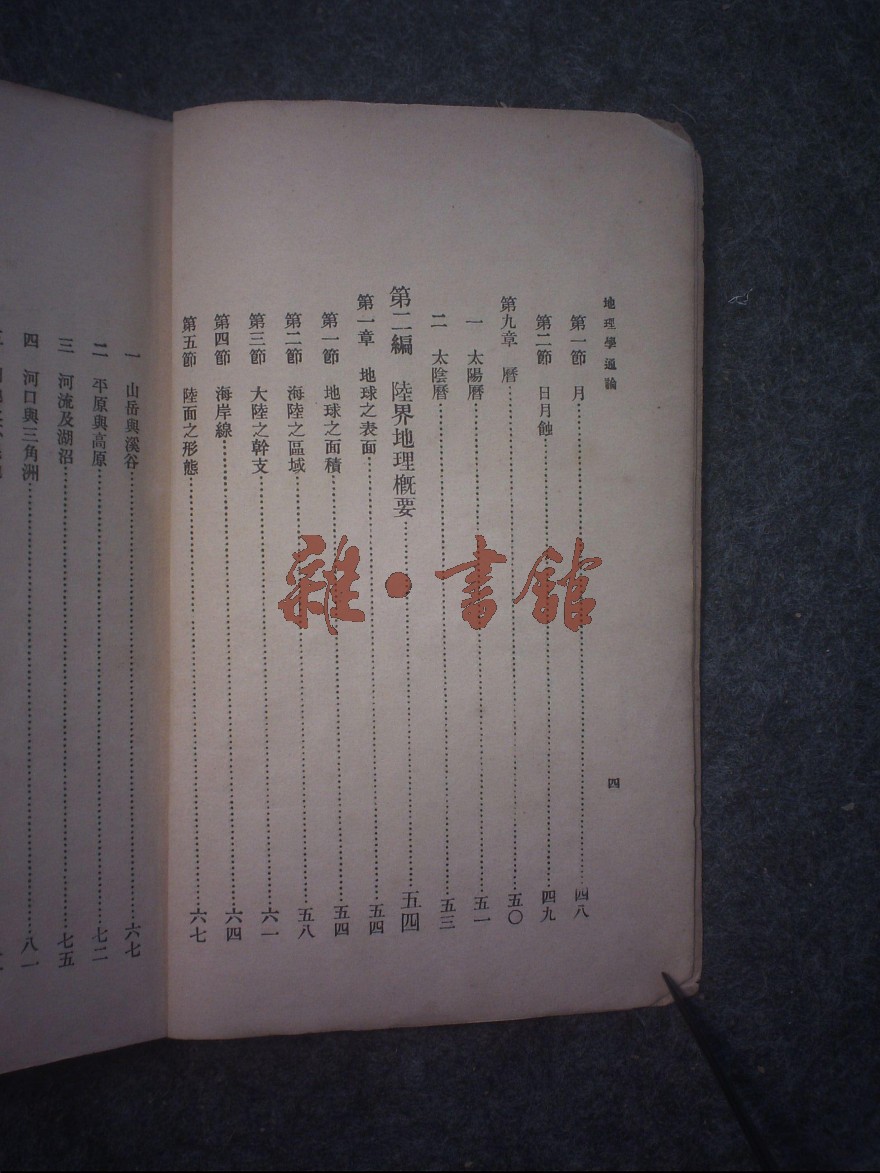 地理學通論
第一節　月………四八
第二節　日月蝕………四九
第九章　曆………五〇
一　太陽曆………五一
二　太陰曆………五三
第二編　陸界地理概要………五四
第一章　地球之表面………五四
第一節　地球之面積………五四
第二節　海陸之區域………五八
第三節　大陸之幹支………六一
第四節　海岸線………六四
第五節　陸面之形態………六七
四
一　山岳與溪谷………六七
二　平原與高原………七二
三　河流及湖沼………七五
四　河口與三角洲………八一
雜·書館